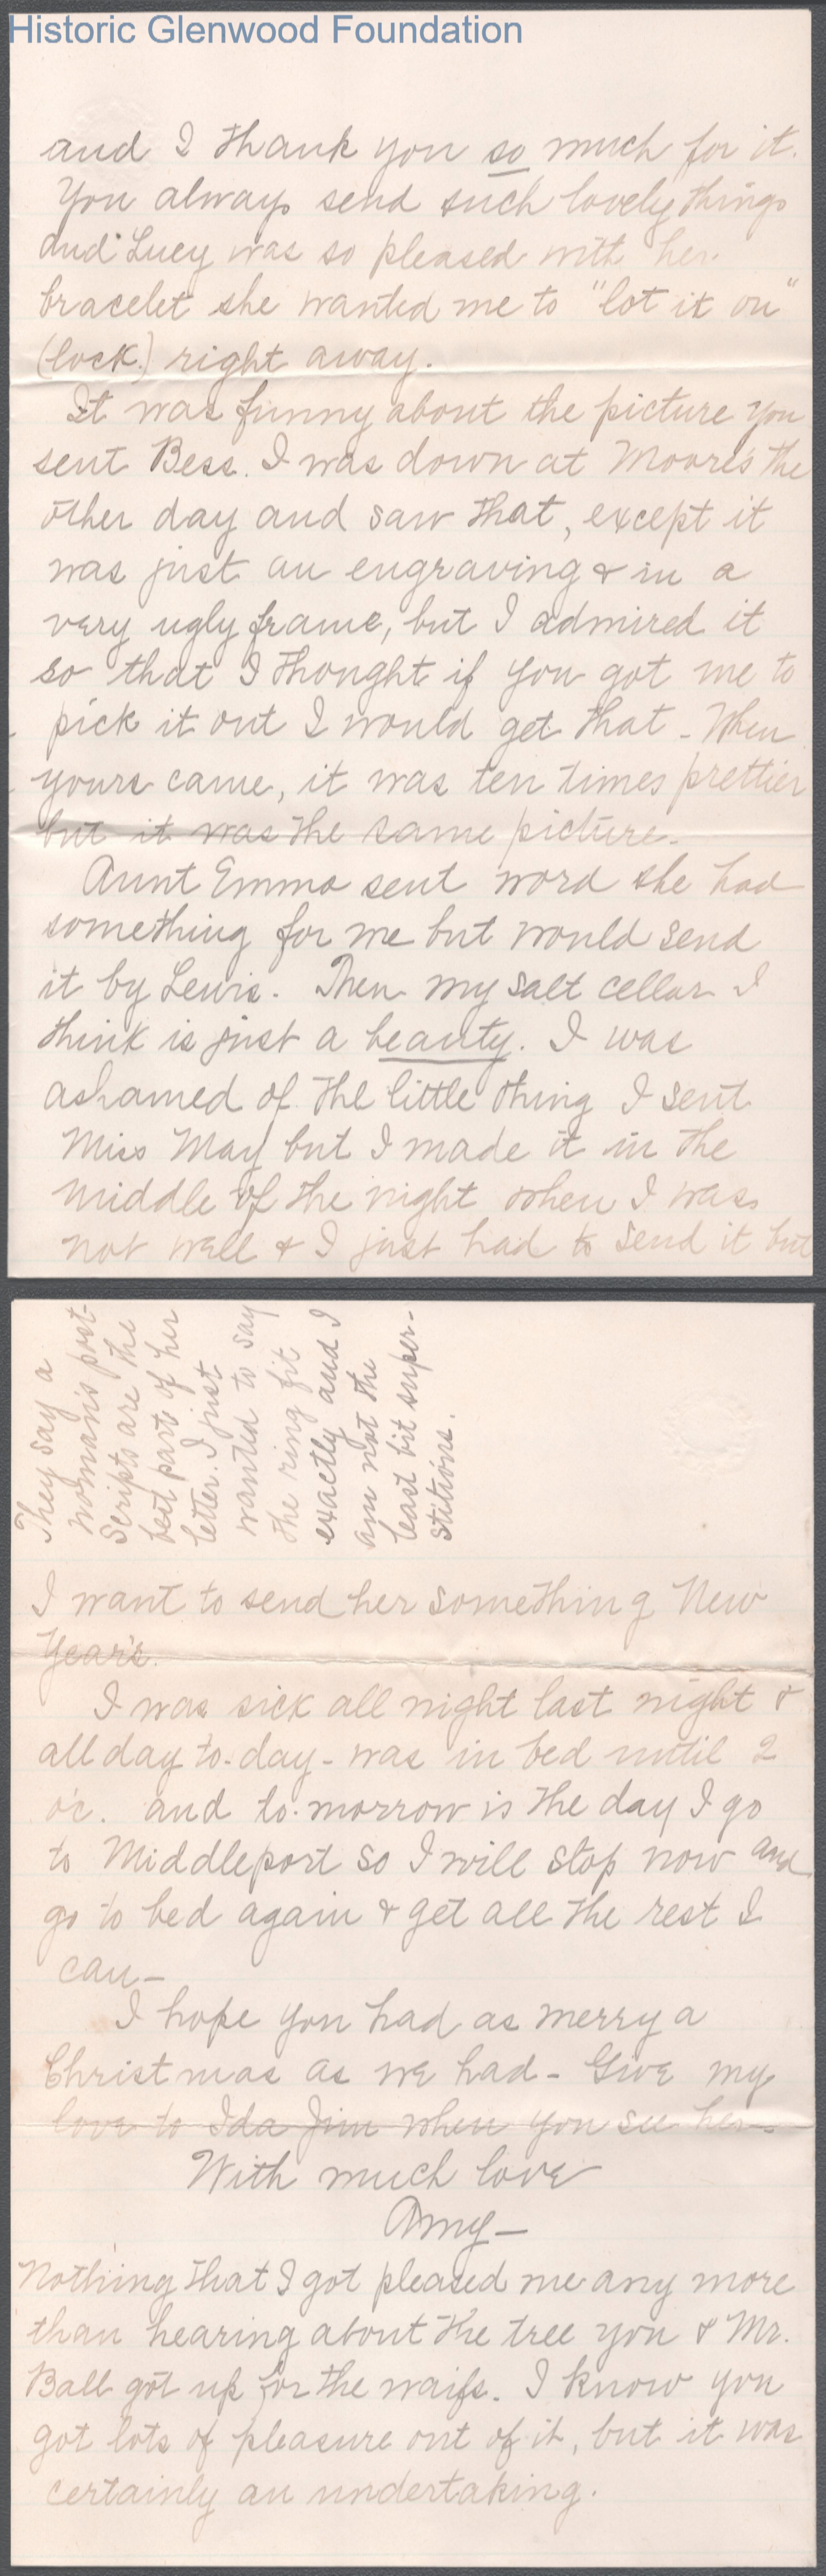 Historic Glenwood Foundation
and I thank you so much for it.
You always send such lovely things
and Lucy was so pleased with her
bracelet she wanted me to "lot it on"
(lock.) right away.
It was funny about the picture you
sent Bess. I was down at Moore's the
other day and saw that, except it
was just an engraving & in a
very ugly frame, but I admired it
so that I thought if you got me to
pick it out I would get that - When
yours came, it was ten times prettier
but it was the same picture.
Aunt Emma sent word she had
something for me but would send
it by Lewis. Then my salt cellar I
think is just a beauty. I was
ashamed of the little thing I sent
Miss May but I made it in the
middle of the night when I was
not well & I just had to send it but
They say a
woman's post-
scripts are the
best part of her
letter. I just
wanted to say
the ring fit
exactly and I
am not the
least bit super-
stitious.
I want to send her something New
Year's.
I was sick all night last night &
all day to-day - was in bed until 2
o'c. and to-morrow is the day I go
to Middleport so I will stop now and
go to bed again & get all the rest I
can -
I hope you had as merry a
Christmas as we had - Give my
love to Ida Jim when you see her -
With much love
Amy -
Nothing that I got pleased me any more
than hearing about the tree you & Mr.
Ball got up for the waifs. I know you
got lots of pleasure out of it, but it was
certainly an undertaking.